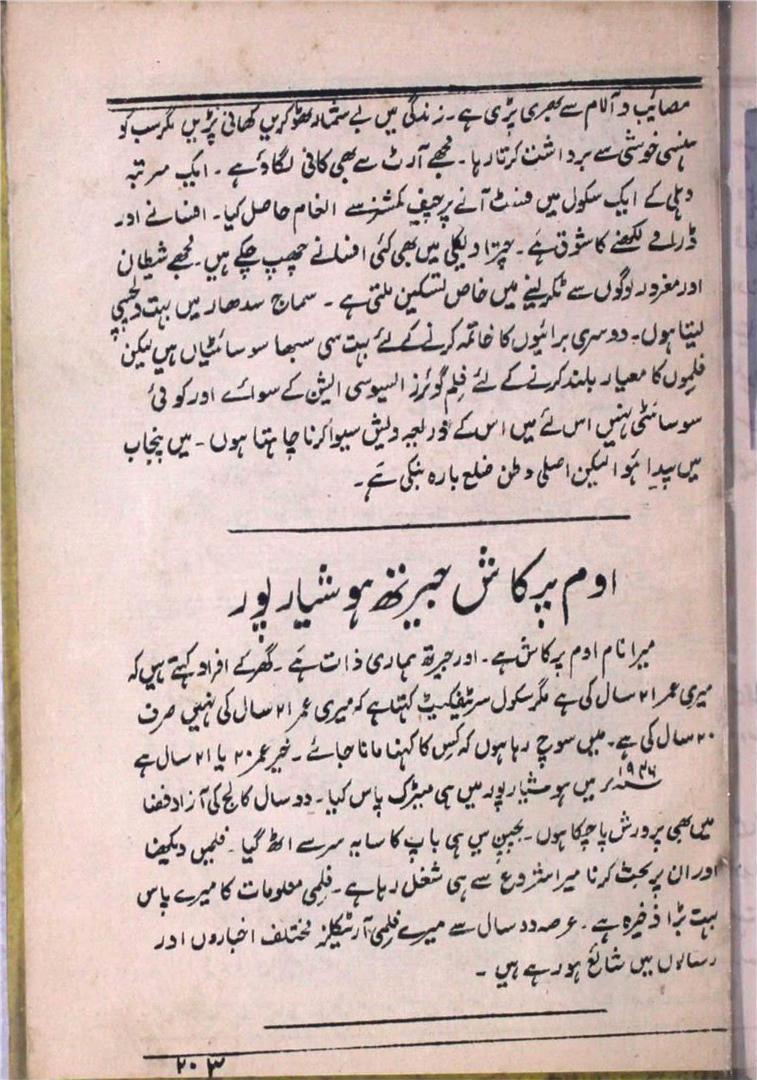 مصائب و آلام سے بھری پڑی ہے۔ زندگی میں بے شمار ٹھوکریں کھانی پڑیں مگر سب کو
ہنسی خوشی سے برداشت کرتا رہا۔ مجھے آرٹ سے بھی کافی لگاؤ ہے۔ ایک مرتبہ
دہلی کے ایک سکول میں فسٹ آنے پر چیف کمشنر سے انعام حاصل کیا۔ افسانے اور
ڈرامے لکھنے کا شوق ہے۔ چترا ویکلی میں بھی کئی افسانے چھپ چکے ہیں۔ مجھے شیطان
اور مغرور لوگوں سے ٹکر لینے میں خاص تسکین ملتی ہے۔ سماج سدھار میں بہت دلچسپی
لیتا ہوں۔ دوسری برائیوں کا خاتمہ کرنے کے لئے بہت سی سبھا سوسائٹیاں ہیں لیکن
فلموں کا معیار بلند کرنے کے لئے فلم گوئرز ایسوسی ایشن کے سوائے اور کوئی
سوسائٹی نہیں اس لئے میں اس کے ذریعہ دیش سیوا کرنا چاہتا ہوں۔ میں پنجاب
میں پیدا ہوا لیکن اصلی وطن ضلع بارہ بنکی ہے۔
اوم پرکاش جیرتھ ہوشیارپور
میرا نام اوم پرکاش ہے۔ اور جیرتھ ہماری ذات ہے۔ گھر کے افراد کہتے ہیں کہ
میری عمر ۲۱ سال کی ہے مگر سکول سرٹیفکیٹ کہتا ہے کہ میری عمر ۲۱ سال کی نہیں صرف
۲۰ سال کی ہے۔ میں سوچ رہا ہوں کہ کس کا کہنا مانا جائے۔ خیر عمر ۲۰ یا ۲۱ سال ہے
۱۹۴۶ء میں ہوشیارپور میں ہی میٹرک پاس کیا۔ دو سال کالج کی آزاد فضا
میں بھی پرورش پا چکا ہوں۔ بچپن میں ہی باپ کا سایہ سر سے اٹھ گیا۔ فلمیں دیکھنا
اور ان پر بحث کرنا میرا شروع سے ہی شغل رہا ہے۔ فلمی معلومات کا میرے پاس
بہت بڑا ذخیرہ ہے۔ عرصہ دو سال سے میرے فلمی آرٹیکلز مختلف اخباروں اور
رسالوں میں شائع ہو رہے ہیں۔
۲۰۳